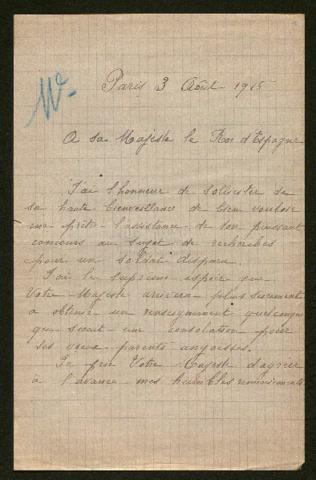 Paris 3 Août 1915
A sa Majeste le Roi d'Espagne
J'ai l'honneur de solliciter de
sa haute bienveillance de bien vouloir
me prêter l'assistance de son puissant
concours au sujet de recherches
pour un soldat disparu
J'ai le suprême espoir que
Votre Majeste arrivera plus surement
a obtenir un renseignement quelconque
qui serait une consolation pour
ses vieux parents angoisses.
Je prie Votre Majeste d'agréer
à l'avance mes humbles remerciements